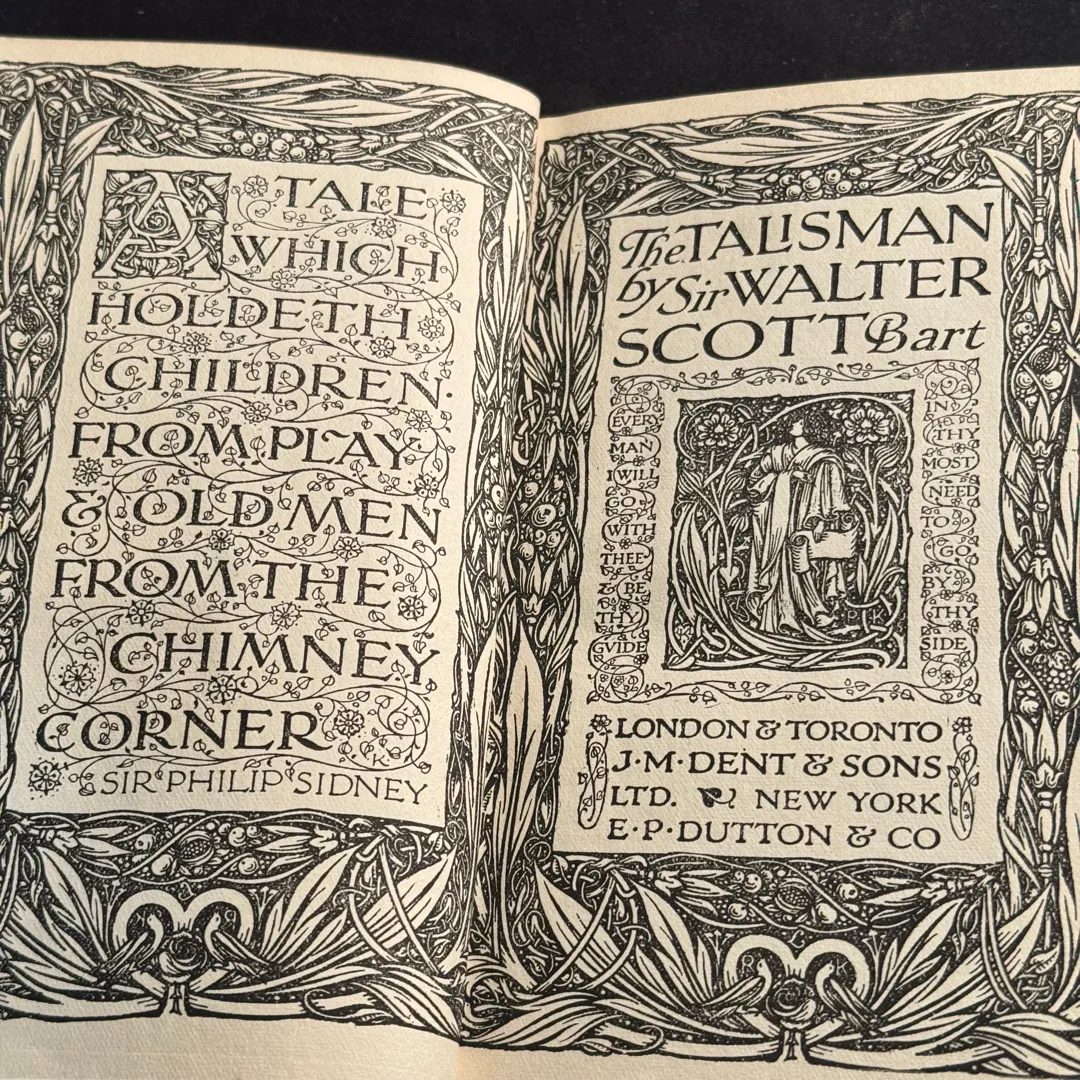 A TALE
WHICH
HOLDETH
CHILDREN
FROM PLAY
& OLD MEN
FROM THE
CHIMNEY
CORNER
SIR PHILIP SIDNEY
The TALISMAN
by Sir WALTER
SCOTT Bart
EVERY
MAN
I WILL
GO
WITH
THEE
& BE
THY
GVIDE
IN
THY
MOST
NEED
TO
GO
BY
THY
SIDE
LONDON & TORONTO
J·M·DENT & SONS
LTD. NEW YORK
E·P·DUTTON & CO